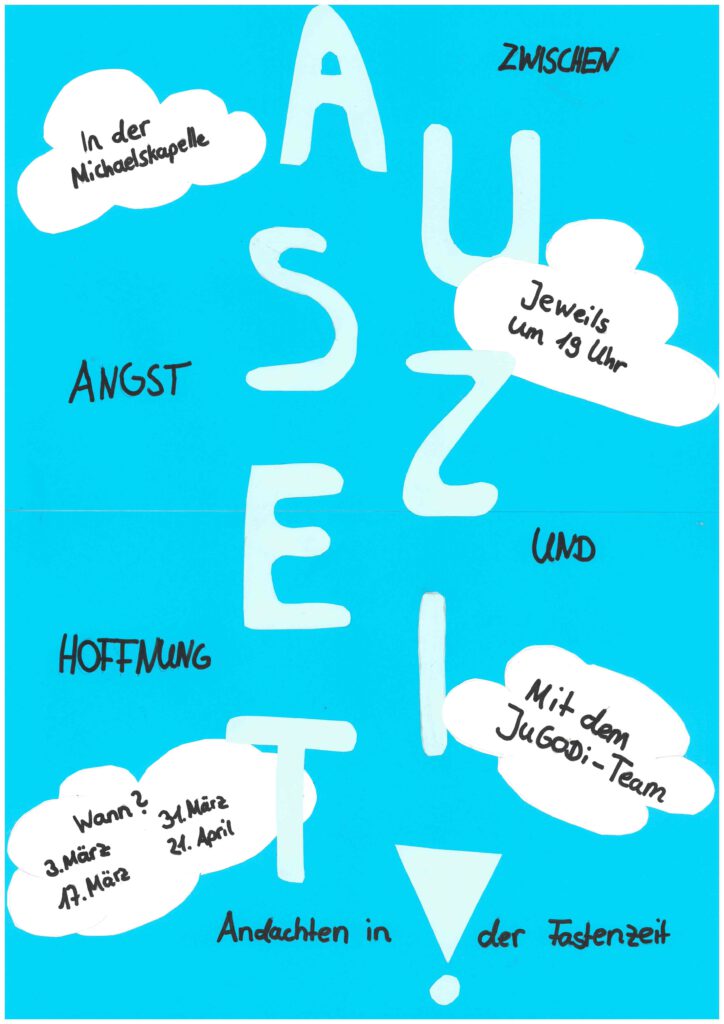 AUSZEIT!
ZWISCHEN
ANGST
UND
HOFFNUNG
In der
Michaelskapelle
Jeweils
um 19 Uhr
Mit dem
JuGODi-Team
Wann?
3. März
17. März
31. März
21. April
Andachten in der Fastenzeit